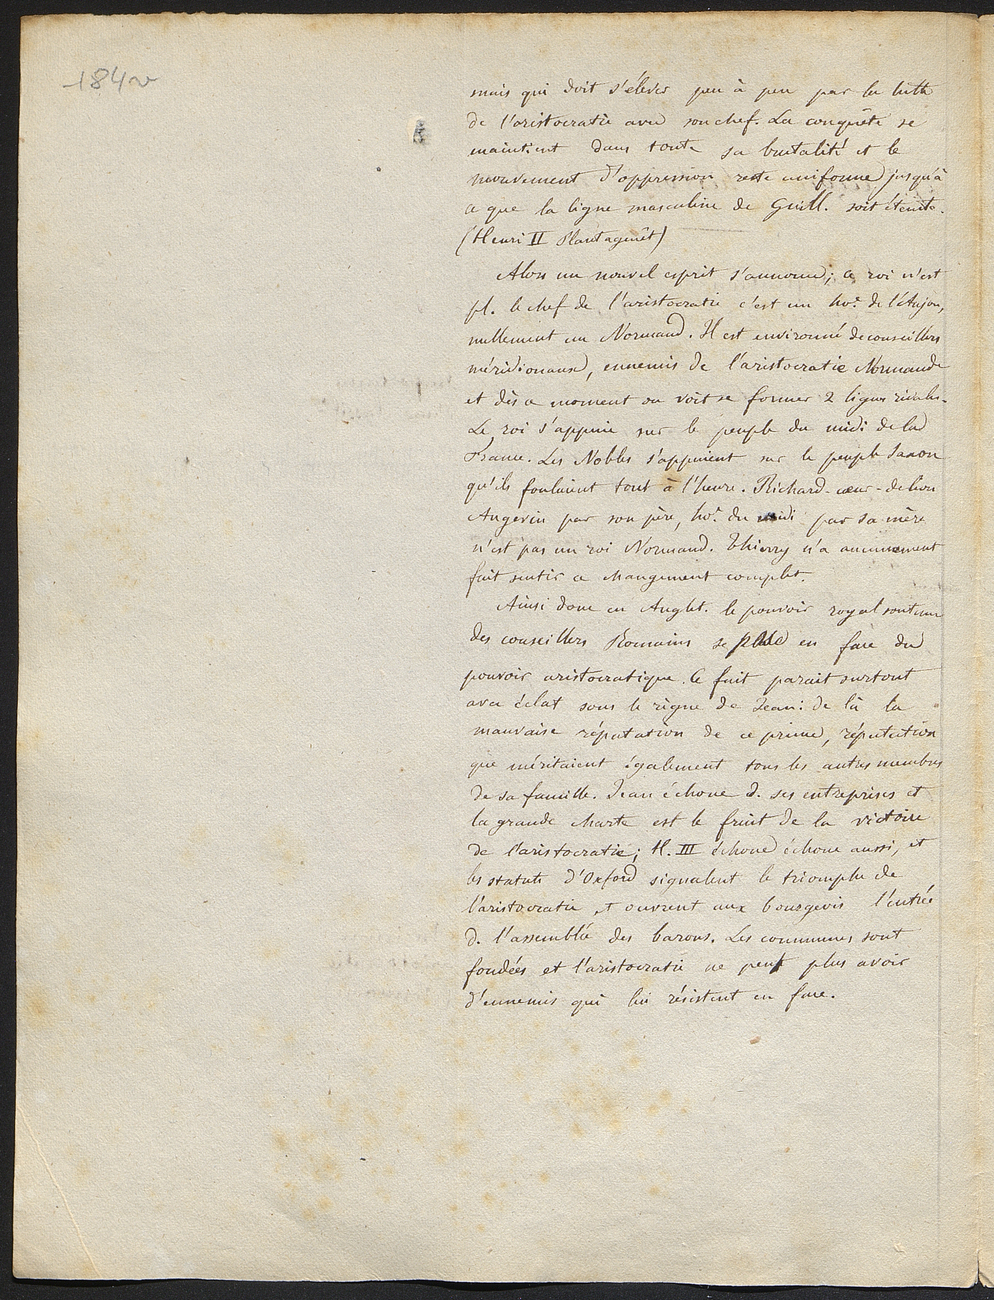 184 v
mais qui doit s'élever peu à peu par la lutte
de l'aristocratie avec son chef. La conquête se
maintient dans toute sa brutalité et le
mouvement d'oppression reste uniforme jusqu'à
ce que la ligne masculine de Guill. soit éteinte.
(Henri II Plantagenêt)
Alors un nouvel esprit s'annonce; ce roi n'est
pl. le chef de l'aristocratie c'est un ho.e de l'Anjou,
nullement un Normand. Il est environné de conseillers
méridionaux, ennemis de l'aristocratie Normande
et dès ce moment on voit se former 2 ligues rivales.
Le roi s'appuie sur le peuple du midi de la
France. Les Nobles s'appuient sur le peuple Saxon
qu'ils foulaient tout à l'heure. Richard-cœur-de lion
Angevin par son père, ho.e du midi par sa mère
n'est pas un roi Normand. Thierry n'a aucunement
fait sentir ce changement complet.
Ainsi donc en Anglet. le pouvoir royal soutenu
des conseillers Romains se place en face du
pouvoir aristocratique. Ce fait parait surtout
avec éclat sous le règne de Jean: de là la
mauvaise réputation de ce prince, réputation
que méritaient également tous les autres membres
de sa famille. Jean échoue d. ses entreprises et
la grande charte est le fruit de la victoire
de l'aristocratie; H. III échoue échoue aussi, et
les statuts d'Oxford signalent le triomphe de
l'aristocratie et ouvrent aux bourgeois l'entrée
d. l'assemblée des barons. Les communes sont
fondées et l'aristocratie ne peut plus avoir
d'ennemis qui lui résistent en face.